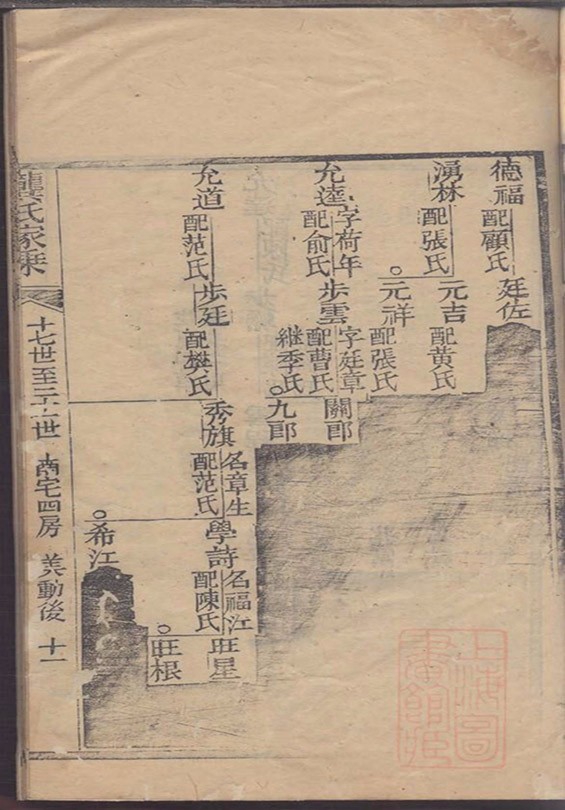 德福 配顧氏 廷佐
湧林 配張氏 元吉 配黃氏
元祥 配張氏
允達 字荷年 配俞氏 步雲 字廷章 配曹氏 繼季氏 關郎
九郎
允道 配范氏 步廷 配樊氏 秀旗 名章生 配范氏 學詩 名福江 配陳氏 旺星
旺根
希江
龔氏家乘 十七世至三十一世 南宅四房 美動後 十一
上海圖書館藏